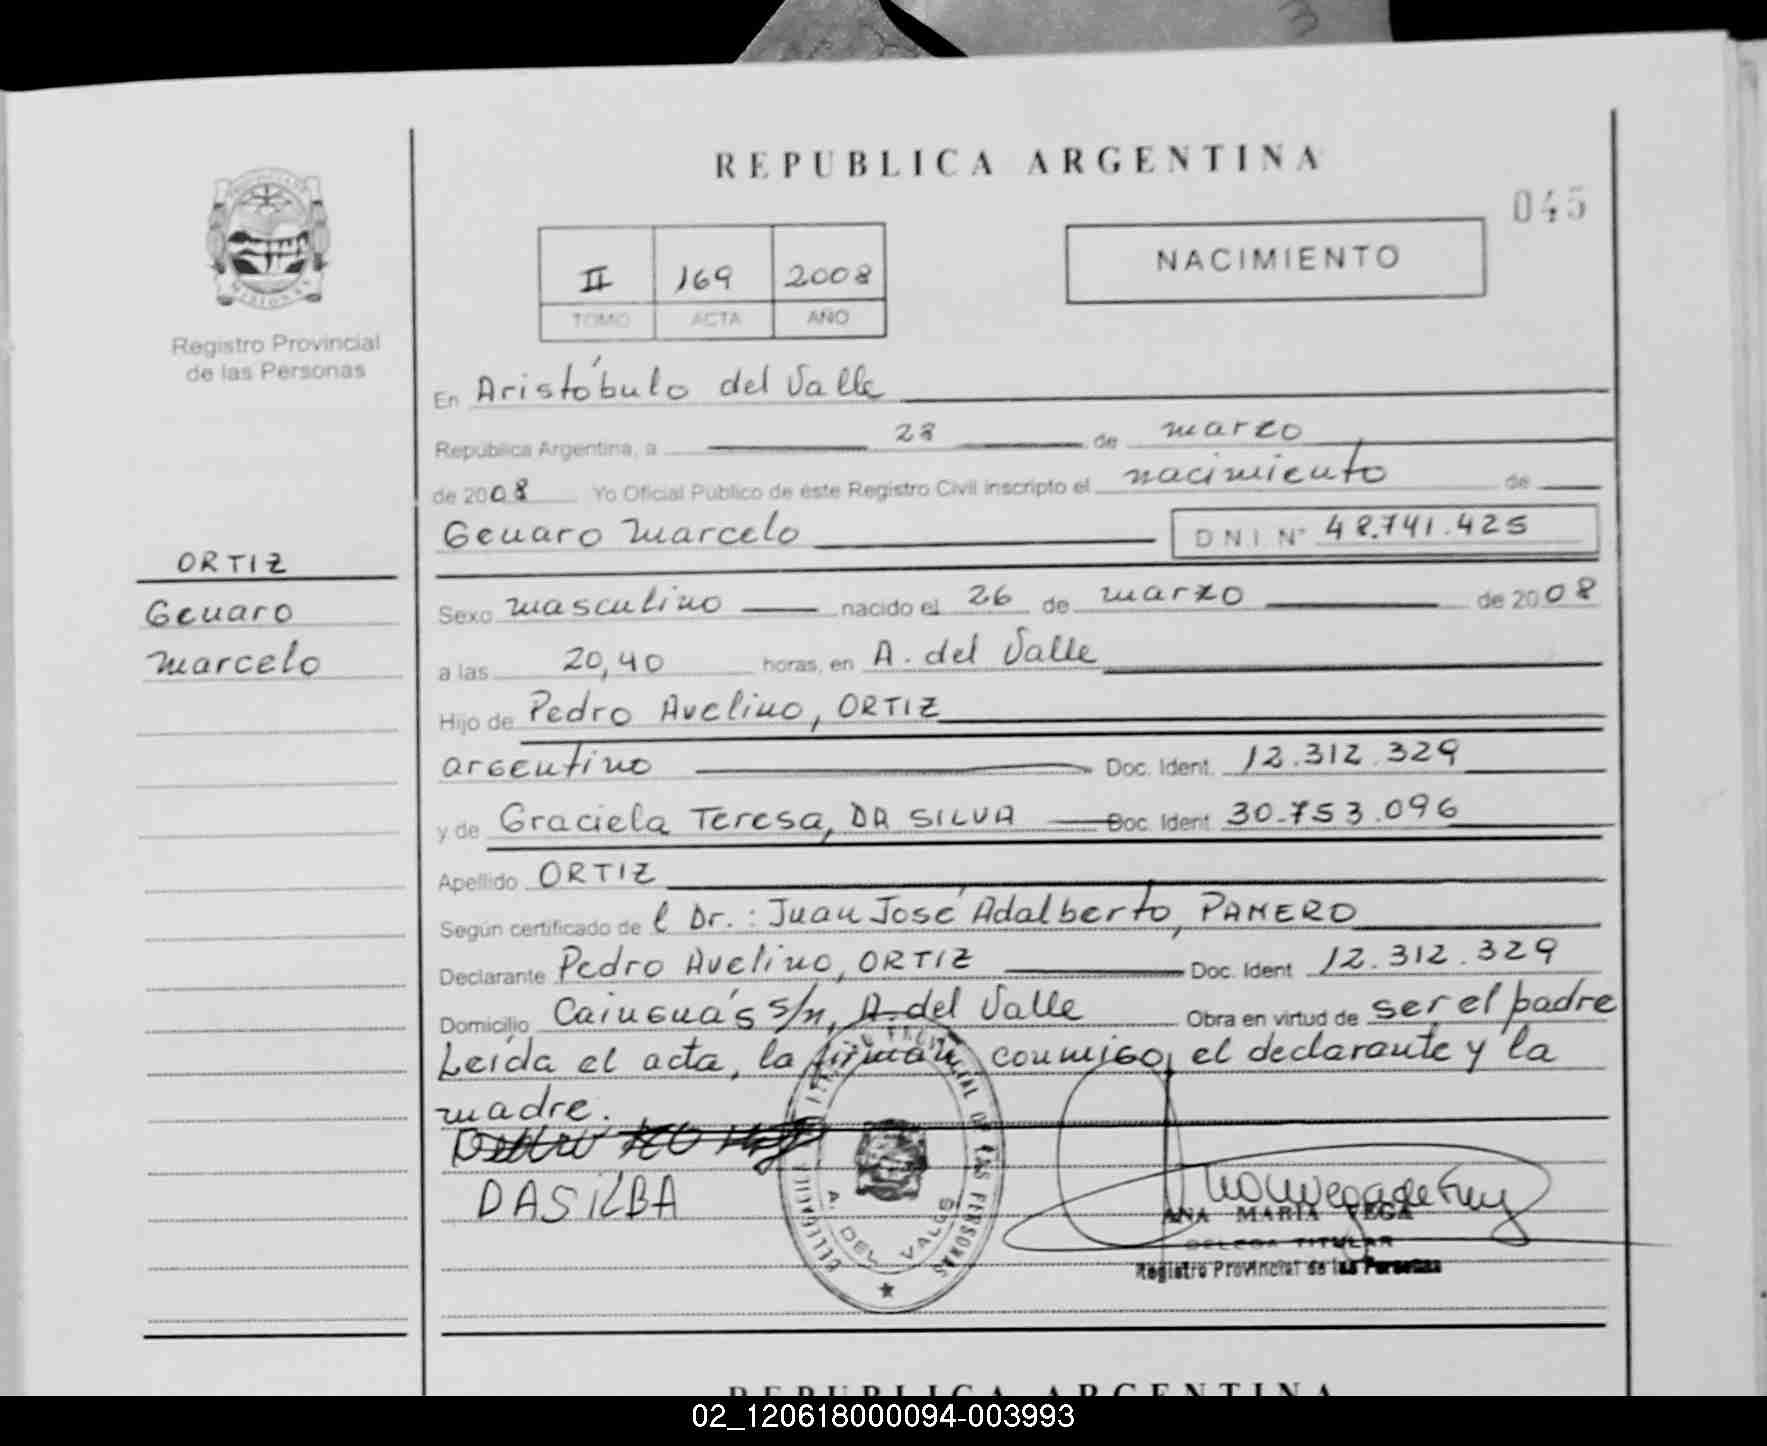 REPUBLICA ARGENTINA
045
NACIMIENTO
II 169 2008
TOMO ACTA AÑO
MISIONES
Registro Provincial
de las Personas
En Aristóbulo del Valle
República Argentina, a 28 de marzo
de 2008 Yo Oficial Público de éste Registro Civil inscripto el nacimiento de
Genaro Marcelo DNI Nº 48.741.425
ORTIZ
Genaro
Marcelo
Sexo masculino nacido el 26 de marzo de 2008
a las 20,40 horas, en A. del Valle
Hijo de Pedro Avelino, ORTIZ
argentino Doc. Ident. 12.312.329
y de Graciela Teresa, DA SILVA Doc. Ident. 30.753.096
Apellido ORTIZ
Según certificado del Dr.: Juan José Adalberto, PAMERO
Declarante Pedro Avelino, ORTIZ Doc. Ident 12.312.329
Domicilio Cainguás s/n, A. del Valle Obra en virtud de ser el padre
Leída el acta, la firman conmigo, el declarante y la
madre.
DASILBA
A. DEL VALLE
ANA MARIA VEGA
DELEGA TITULAR
Registro Provincial de las Personas
REPUBLICA ARGENTINA
02_120618000094-003993